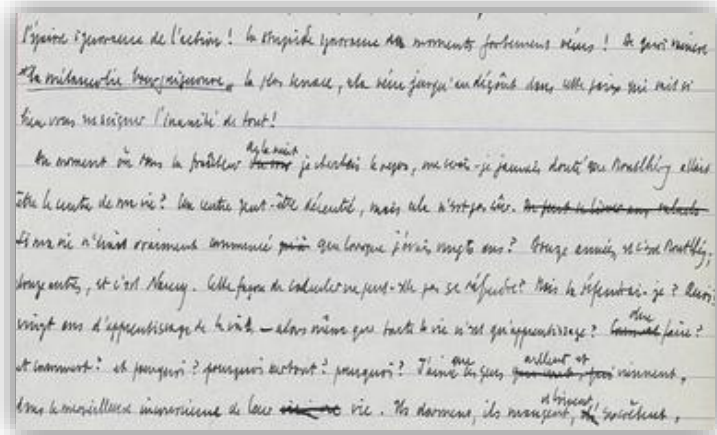 l'épaisse ignorance de l'action ! la stupide ignorance des moments fortement vécus ! De quoi
"la mélancolie bourguignonne" la plus tenace, cela jusqu'au dégoût dans cette paix qui sait si
bien vous enseigner l'inanité de tout !
Au moment où dans la fraîcheur de la nuit je cherchais le repos, me suis-je jamais douté que allait
être le centre de ma vie ? Un centre peut-être décentré, mais cela n'est pas sûr.
Et ma vie n'aurait vraiment commencé que lorsque j'avais vingt ans ? Douze années, et c'est
douze autres, et c'est Nancy. Cette façon de calculer ne peut-elle pas se défendre ? Mais la défendrai-je ? Quoi :
vingt ans d'apprentissage de la vie — alors même que toute la vie n'est qu'apprentissage ? faire ?
et comment ? et pourquoi ? pourquoi surtout ? pourquoi ? J'aime que les gens aillent et viennent,
dans la merveilleuse inconscience de leur vie. Ils dorment, ils mangent, et boivent,